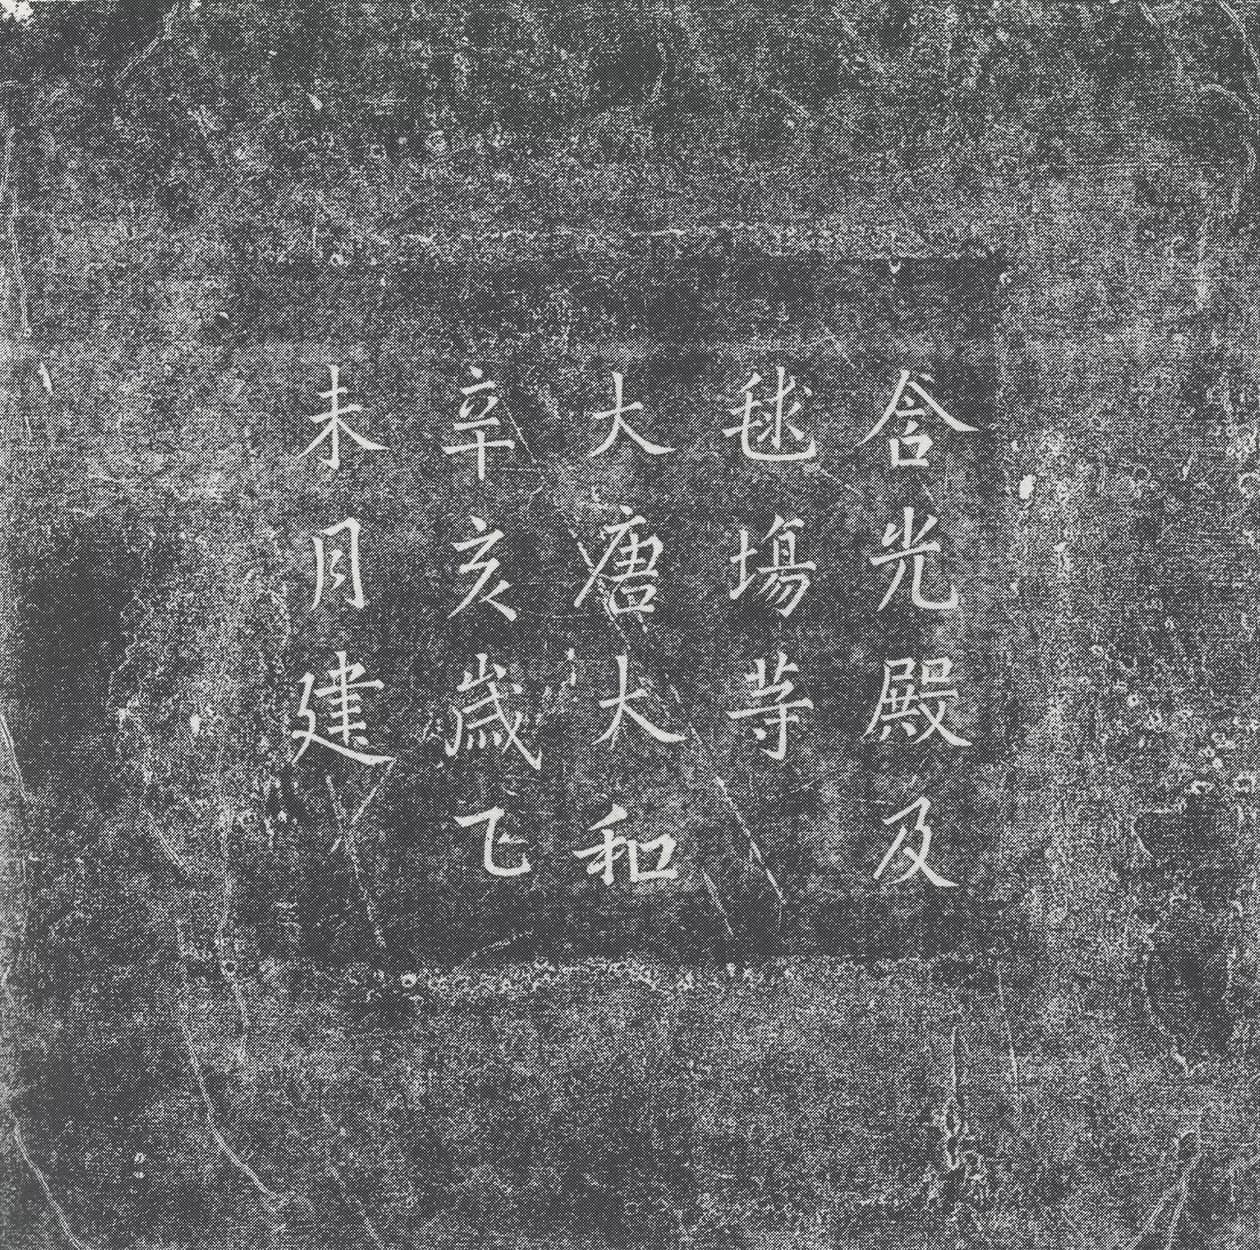 含光殿及
毬場等
大唐大和
辛亥歲乙
未月建